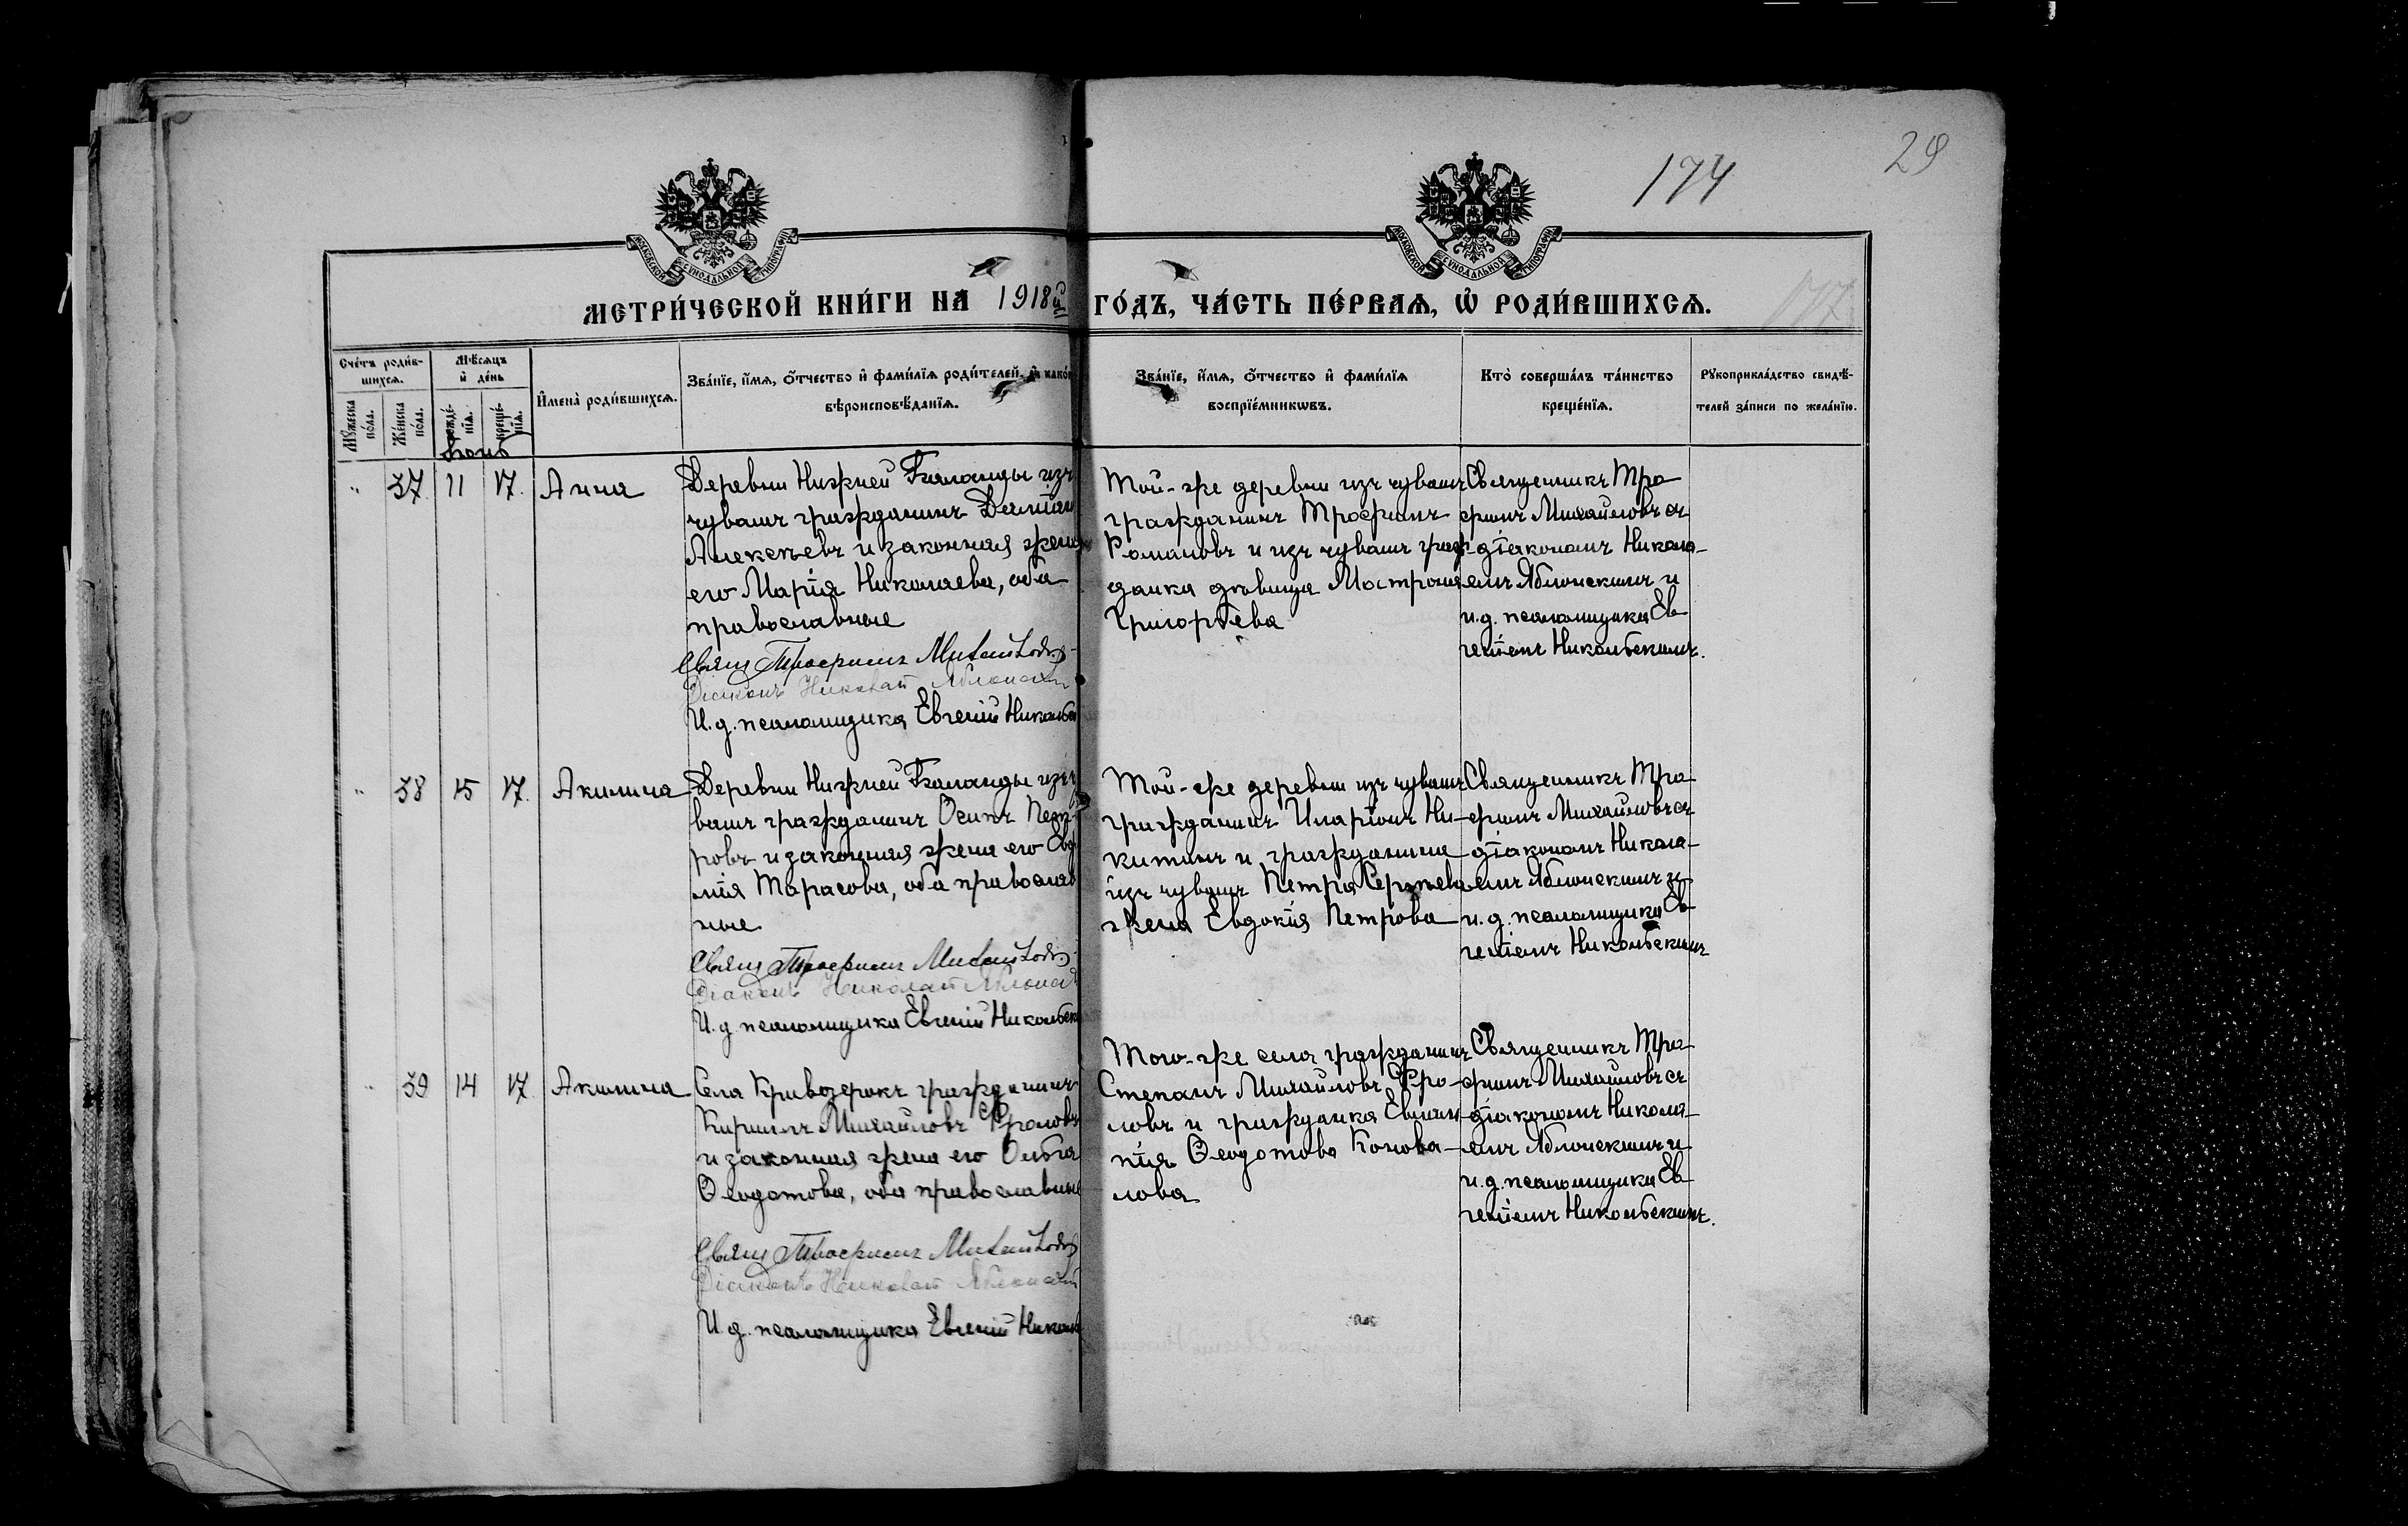 174
29
МОСКОВСКОЙ СѴНОДАЛЬНОЙ ТИПОГРАФІИ
МОСКОВСКОЙ СѴНОДАЛЬНОЙ ТИПОГРАФІИ
МЕТРИ́ЧЕСКОЙ КНИ́ГИ НА 1918й ГО́ДЪ, ЧА́СТЬ ПЕ́РВАѦ, Ѡ҆ РОДИ́ВШИХСѦ.
Сче́тъ роди́в-
шихсѧ.
Мꙋ́жеска по́ла.
Же́нска по́ла.
Мѣ́сѧцъ
и҆ де́нь
рожде́-
нїѧ.
креще́-
нїѧ.
И҆мена̀ роди́вшихсѧ.
Зва́нїе, и҆́мѧ, ѻ҆́тчество и҆ фами́лїѧ роди́телей, и҆ како́гѡ
вѣроисповѣ́данїѧ.
Зва́нїе, и҆́мѧ, ѻ҆́тчество и҆ фами́лїѧ
воспрїе́мникѡвъ.
Кто̀ соверша́лъ та́инство
креще́нїѧ.
Рꙋкоприкла́дство свидѣ́-
телей за́писи по жела́нїю.
Іюнь
„ 37. 11 17. Анна
Деревни Нижней Баланды изъ
чувашъ гражданинъ
Алексѣевъ и законная жена
его Марія Николаева, оба
православные
Свящ Трофимъ Михайловъ
Діаконъ Николай Яблонскій
И. д. псаломщика Евгеній Никольс
Той-же деревни изъ чувашъ
гражданинъ Трофимъ
Романовъ и изъ чувашъ граж
данка дѣвица Матрона
Григорьева
Священникъ Тро
фимъ Михайловъ съ
діакономъ Никола-
емъ Яблонскимъ и
и.д. псаломщика Ев
геніемъ Никольскимъ.
„ 38 15 17. Акилина
Деревни Нижней Баланды изъ чу
вашъ гражданинъ Осипъ Пет-
ровъ и законная жена его Евф
мія Тарасова, оба православ
ные
Свящ Трофимъ Михайловъ
Діаконъ Николай Яблонск
И. д псаломщика Евгеній Никольск
Той-же деревни изъ чувашъ
гражданинъ Иларіонъ Ни-
китинъ и гражданина
изъ чувашъ Петра Сергѣева
жена Евдокія Петрова
Священникъ Тро
фимъ Михайловъ съ
діакономъ Никола-
емъ Яблонскимъ и
и. д. псаломщика Ев
геніемъ Никольскимъ
„ 39 14 17. Акилина
Села Кривозерокъ гражданинъ
Кириллъ Михайловъ Фроловъ
и законная жена его Ольга
Ѳеодотова, оба православные
Свящ Трофимъ Михайловъ
Діаконъ Николай Яблонскій
И. д. псаломщика Евгеній Никол
Того-же села гражданинъ
Степанъ Михайловъ Фро-
ловъ и гражданка Евлам-
пія Ѳеодотова Конова-
лова
Священникъ Тро
фимъ Михайловъ съ
діакономъ Никола-
емъ Яблонскимъ и
и. д. псаломщика Ев
геніемъ Никольскимъ.